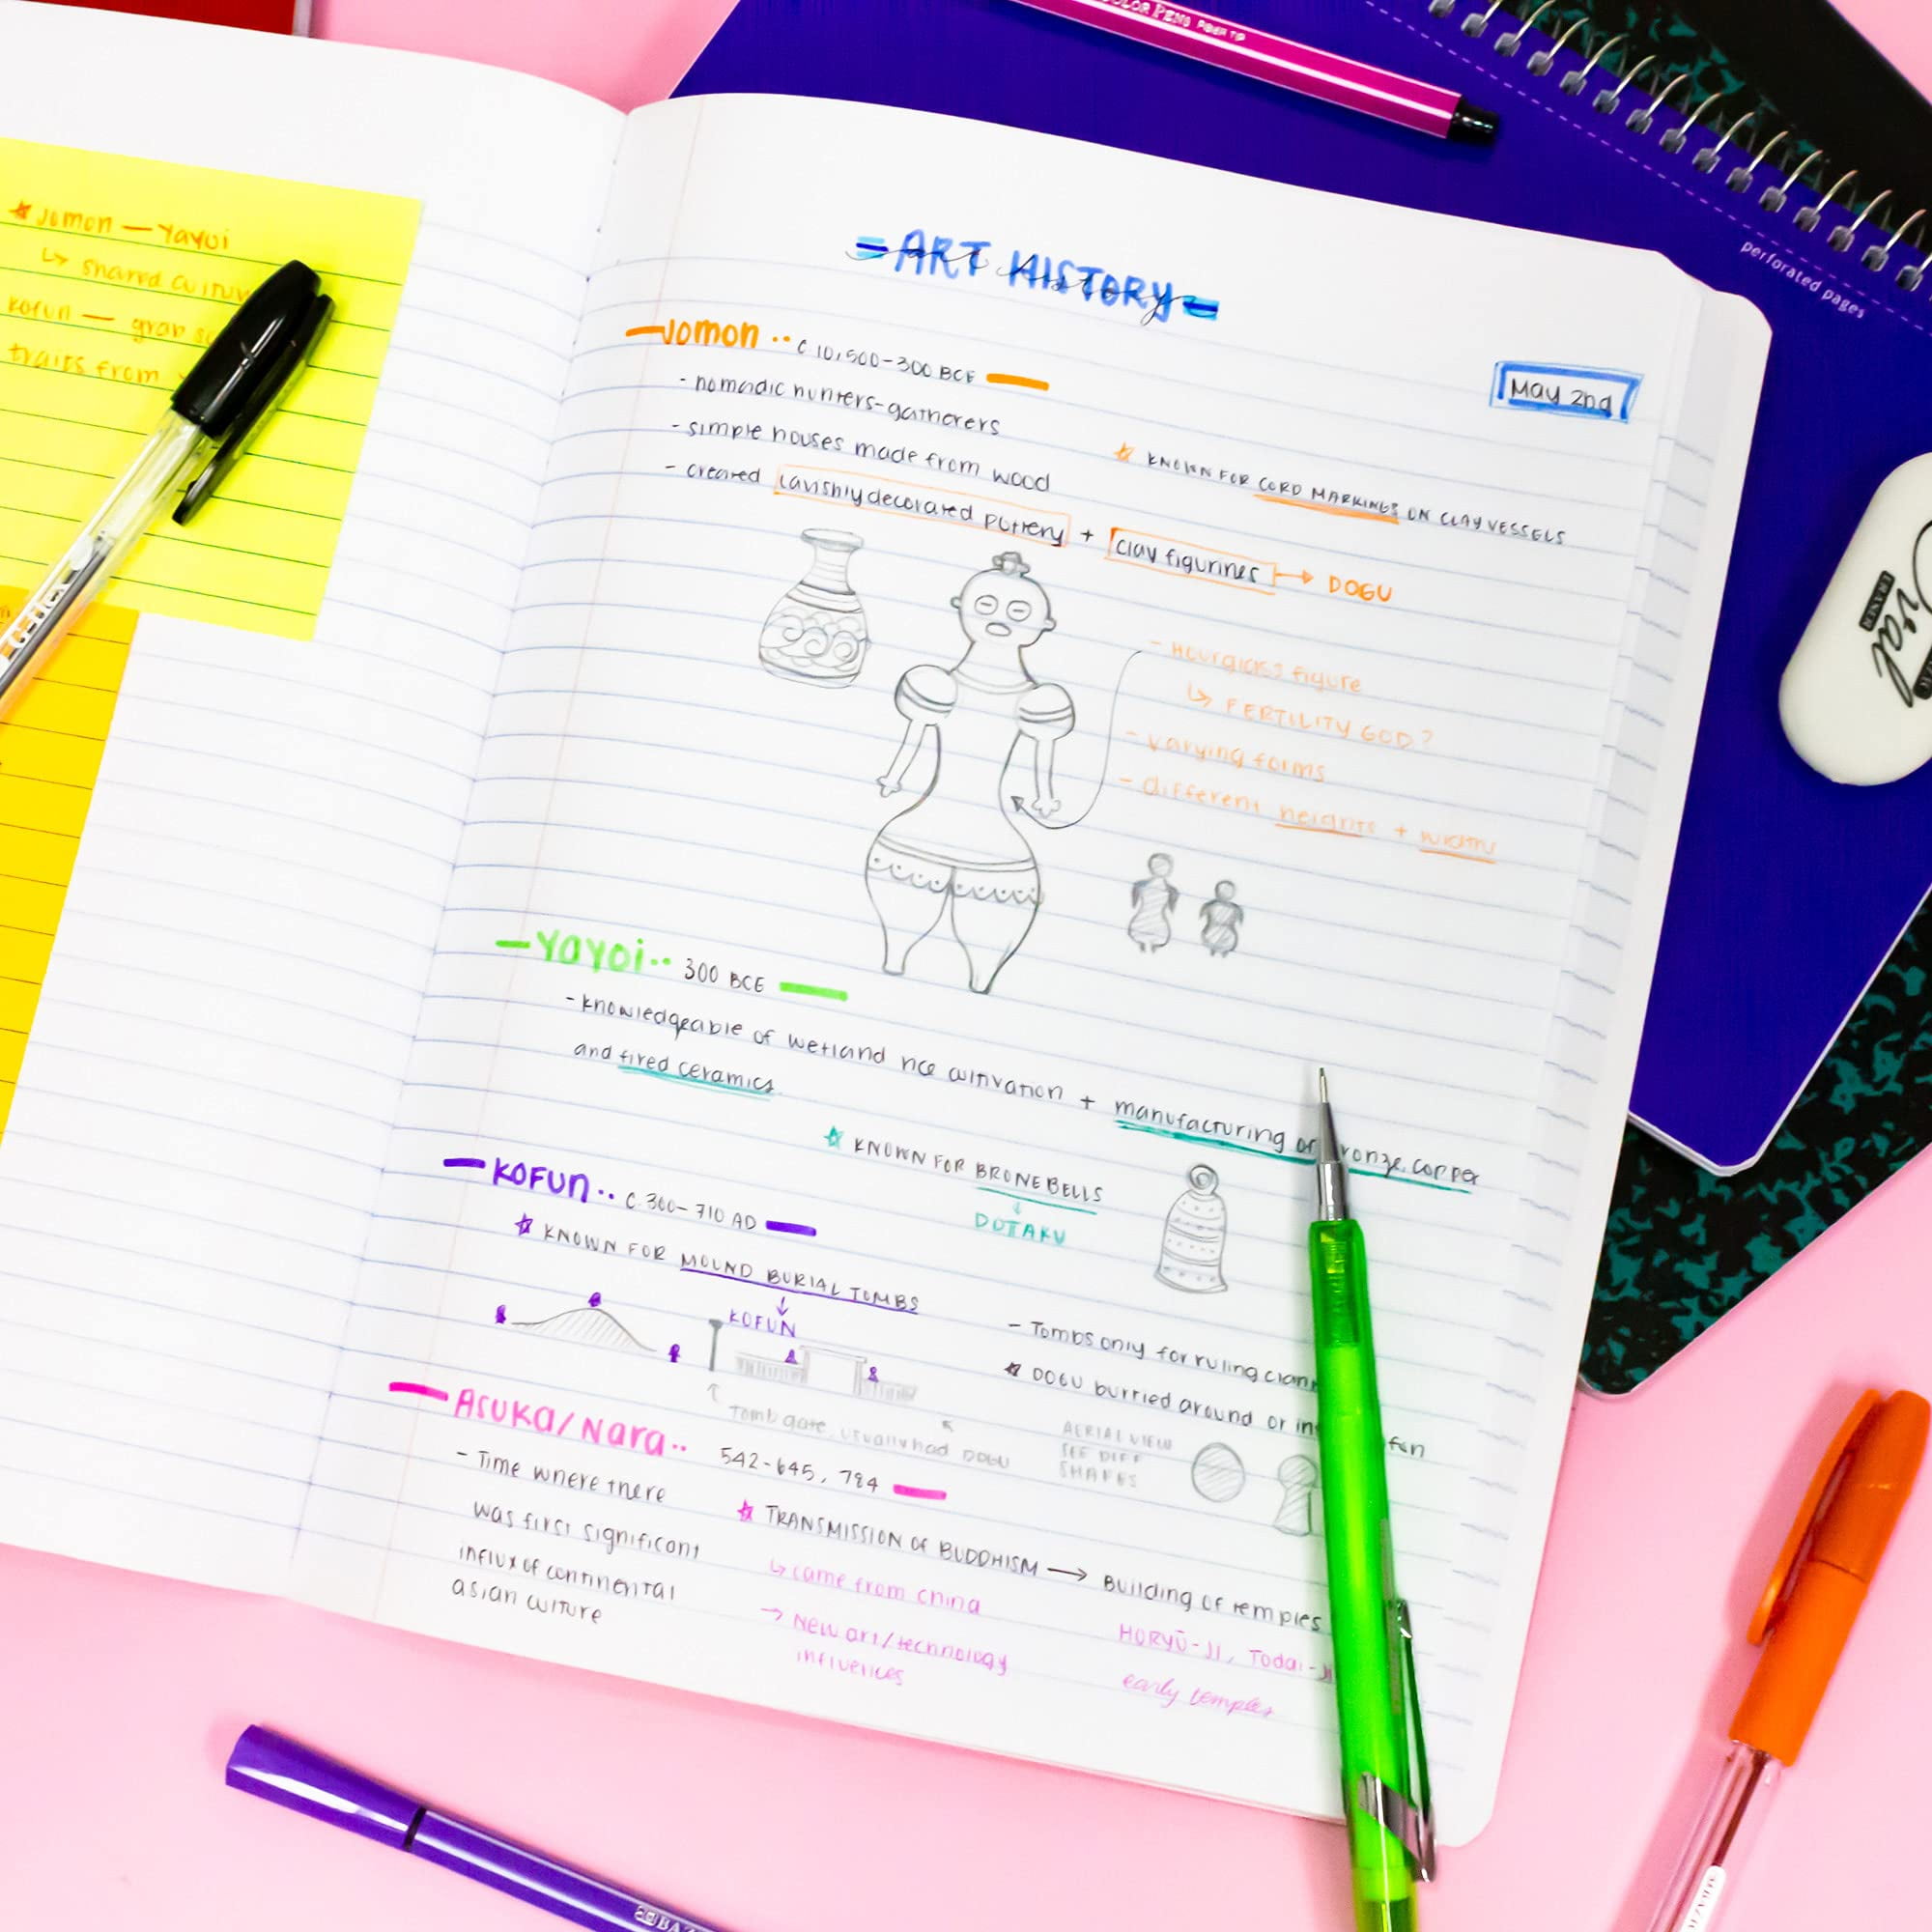 Jomon — Yayoi
↳ shared
Kofun — grab
traits from
= ART HISTORY =
art history
May 2nd
Jomon ·· c 10,500–300 BCE
- nomadic hunters-gatherers
- simple houses made from wood
- created lavishly decorated pottery + clay figurines → DOGU
☆ KNOWN FOR CORD MARKINGS ON CLAY VESSELS
- Hourglass figure
↳ FERTILITY GOD?
- varying forms
- different heights + widths
Yayoi ·· 300 BCE
- knowledgeable of wetland rice cultivation + manufacturing of bronze, copper
and fired ceramics.
☆ KNOWN FOR BRONE BELLS
↓
DOTAKU
KOFUN ·· c. 300–710 AD
☆ KNOWN FOR MOUND BURIAL TOMBS
↓
KOFUN
Tomb gate, usually had DOGU
- Tombs only for ruling
☆ DOGU burried around or
AERIAL VIEW
SEE DIFF
SHAPES
ASUKA/Nara ·· 542-645, 784
- Time where there
was first significant
influx of continental
asian culture
☆ TRANSMISSION OF BUDDHISM → Building of temples
↳ came from china
→ New art/technology
influences
HORYŪ-JI, Todai-JI
early temples
COLOR PENS FIBER TIP
perforated pages
Oval
ERASER